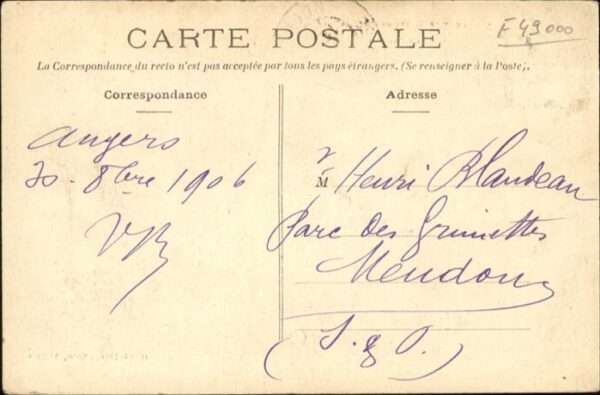 F 49000
CARTE POSTALE
La Correspondance du recto n'est pas acceptée par tous les pays étrangers. (Se renseigner à la Poste).
Correspondance
Adresse
Angers
30 - 8bre 1906
M Henri Blandeau
Parc des Grimettes
Meudon
(S. & O.)